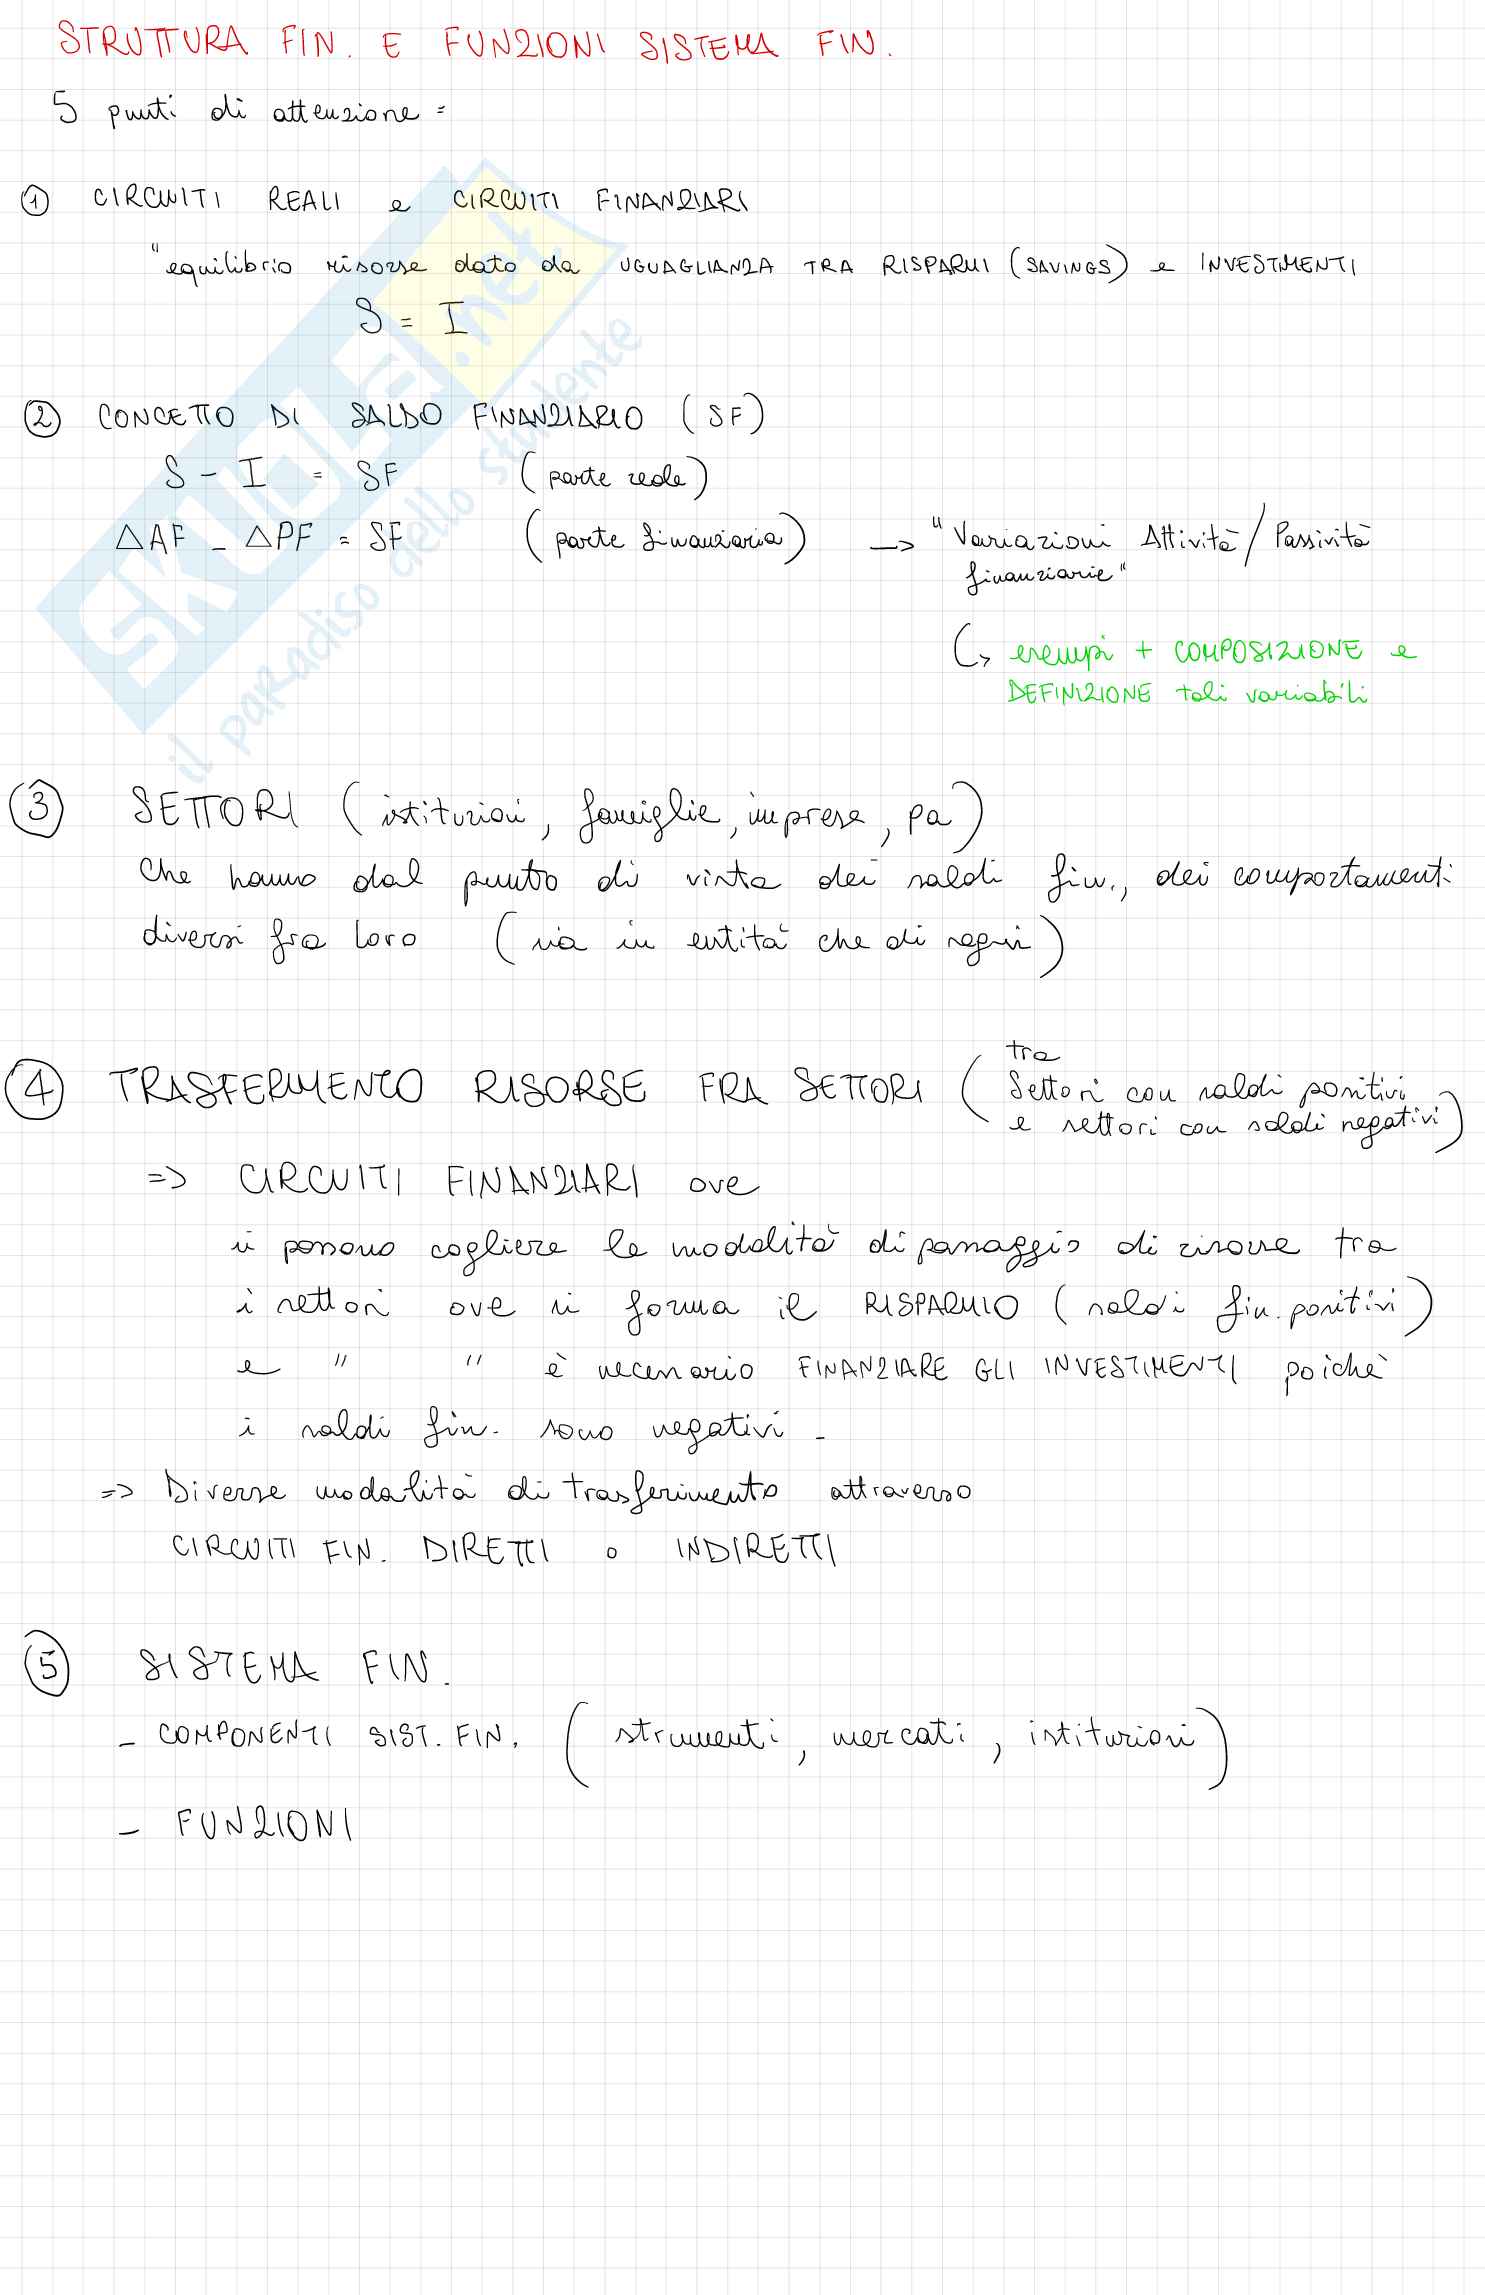 STRUTTURA FIN. E FUNZIONI SISTEMA FIN.
5 punti di attenzione =
① CIRCUITI REALI e CIRCUITI FINANZIARI
"equilibrio risorse dato da UGUAGLIANZA TRA RISPARMI (SAVINGS) e INVESTIMENTI
S = I
② CONCETTO DI SALDO FINANZIARIO (SF)
S - I = SF (parte reale)
ΔAF - ΔPF = SF (parte finanziaria) -> "Variazioni Attività/Passività
finanziarie"
↳ esempi + COMPOSIZIONE e
DEFINIZIONE tali variabili
③ SETTORI (istituzioni, famiglie, imprese, pa)
Che hanno dal punto di vista dei saldi fin., dei comportamenti
diversi fra loro (sia in entità che di segni)
④ TRASFERIMENTO RISORSE FRA SETTORI (tra
Settori con saldi positivi
e settori con saldi negativi)
=> CIRCUITI FINANZIARI ove
si possono cogliere le modalità di passaggio di risorse tra
i settori ove si forma il RISPARMIO (saldi fin. positivi)
e " " è necessario FINANZIARE GLI INVESTIMENTI poichè
i saldi fin. sono negativi.
=> Diverse modalità di trasferimento attraverso
CIRCUITI FIN. DIRETTI o INDIRETTI
⑤ SISTEMA FIN.
- COMPONENTI SIST. FIN. (strumenti, mercati, istituzioni)
- FUNZIONI
SKUOLA.net
il paradiso dello studente